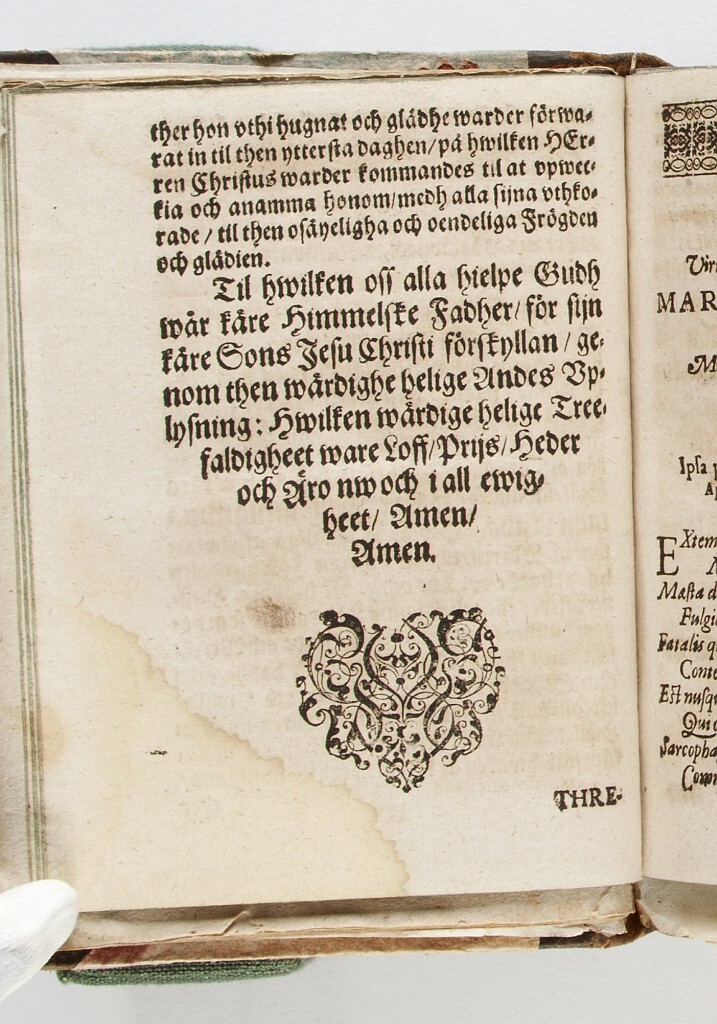 ther hon vthi hugnat och glädhe warder förwa-
rat in til then yttersta daghen/ på hwilken HEr-
ren Christus warder kommandes til at vpwec-
kia och anamma honom/ medh alla sijna vthko-
rade / til then osäyeligha och oendeliga Frögden
och glädien.
Til hwilken oss alla hielpe Gudh
wår käre Himmelske Fadher/ för sijn
käre Sons Jesu Christi förskyllan / ge-
nom then wärdighe helige Andes Vp-
lysning: Hwilken wärdige helige Tree-
faldigheet ware Loff/ Prijs/ Heder
och Äro nw och i all ewig-
heet/ Amen/
Amen.
THRE-
Vir
MAR
M
Ipsa p
EXtem
Mæsta d
Fulgi
Fatalis q
Conte
Est nusq
Qui
Sarcopha